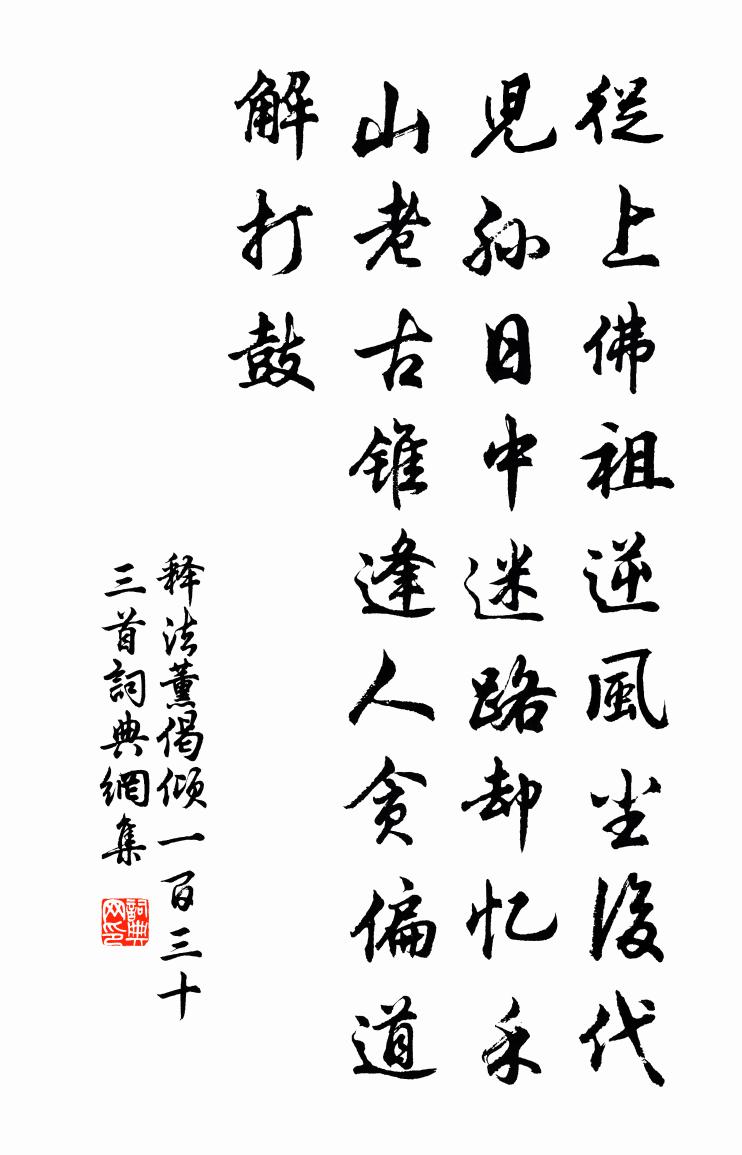 從上佛祖逆風尘後代
児孙日中迷路却忆禾
山老古錐逢人貪偏道
解打鼓
释法薰偈倾一百三十
三首詞典網集
詞典网印